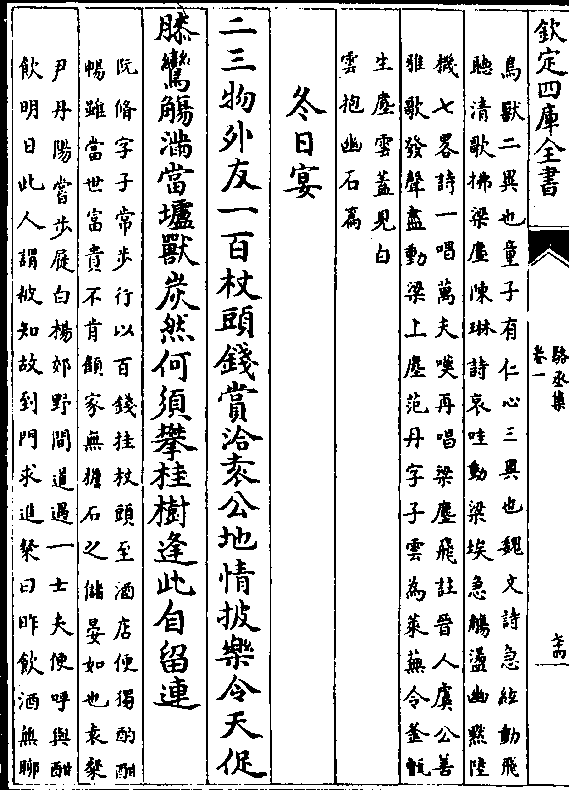 欽定四庫全書
駱丞集
卷一
鳥獸二異也童子有仁心三異也魏文詩急絃動飛
聽清歌拂梁塵陳琳詩哀哇動梁埃急觴盪幽黙陸
機七畧詩一唱萬夫嘆再唱梁塵飛註晉人虞公善
雅歌發聲盡動梁上塵范丹字子雲為萊蕪令釜甑
生塵雲蓋見白
雲抱幽石篇
冬日宴
二三物外友一百杖頭錢賞洽袁公地情披樂令天促
膝鸞觴滿當壚獸炭然何須攀桂樹逢此自留連
阮脩字子常步行以百錢挂杖頭至酒店便獨酌酣
暢雖當世富貴不肯顧家無擔石之儲晏如也袁粲
尹丹陽嘗步屣白楊郊野間道遇一士夫便呼與酣
飲明日此人謂被知故到門求進粲曰昨飲酒無聊